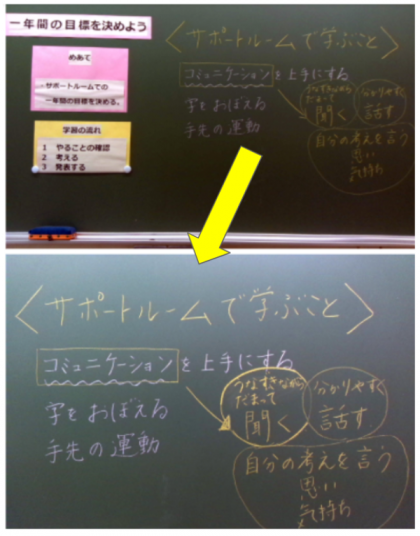 一年間の目標を決めよう
めあて
サポートルームでの
一年間の目標を決める。
学習の流れ
1 やることの確認
2 考える
3 発表する
〈サポートルームで学ぶこと〉
コミュニケーションを上手にする
字をおぼえる
手先の運動
うなずきながら
だまって
聞く
分かりやすく
話す
自分の考えを言う
思い
気持ち
〈サポートルームで学ぶこと〉
コミュニケーションを上手にする
字をおぼえる
手先の運動
うなずきながら
だまって
聞く
分かりやすく
話す
自分の考えを言う
思い
気持ち